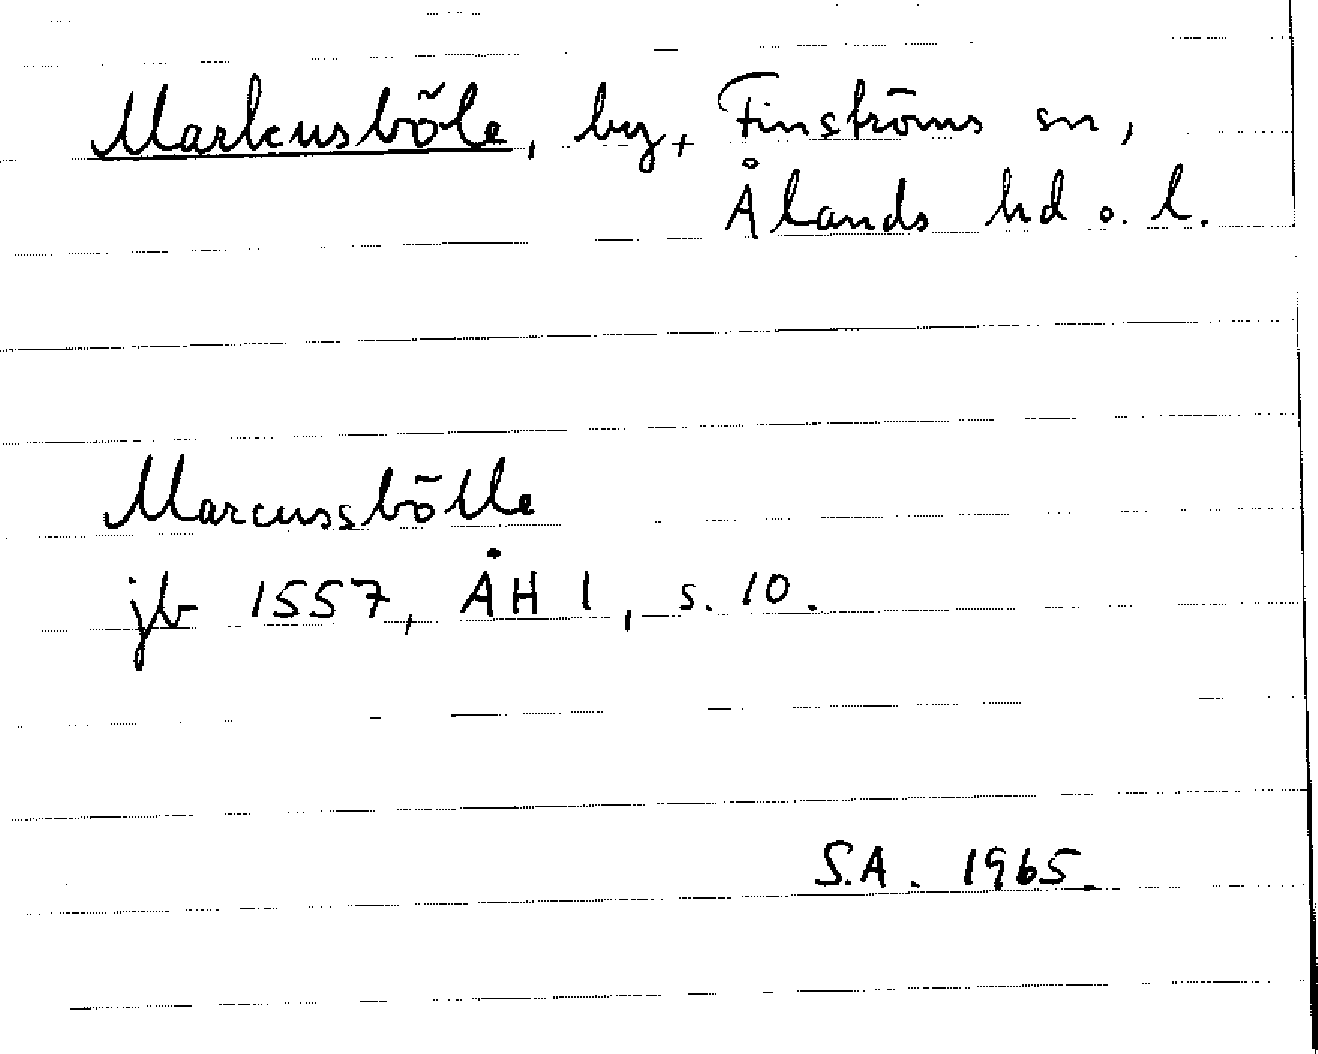 Markusböle, by, Finströms sn,
Ålands hd o. l.
Marcussbölle
jb 1557, ÅH 1, s. 10.
S.A. 1965.